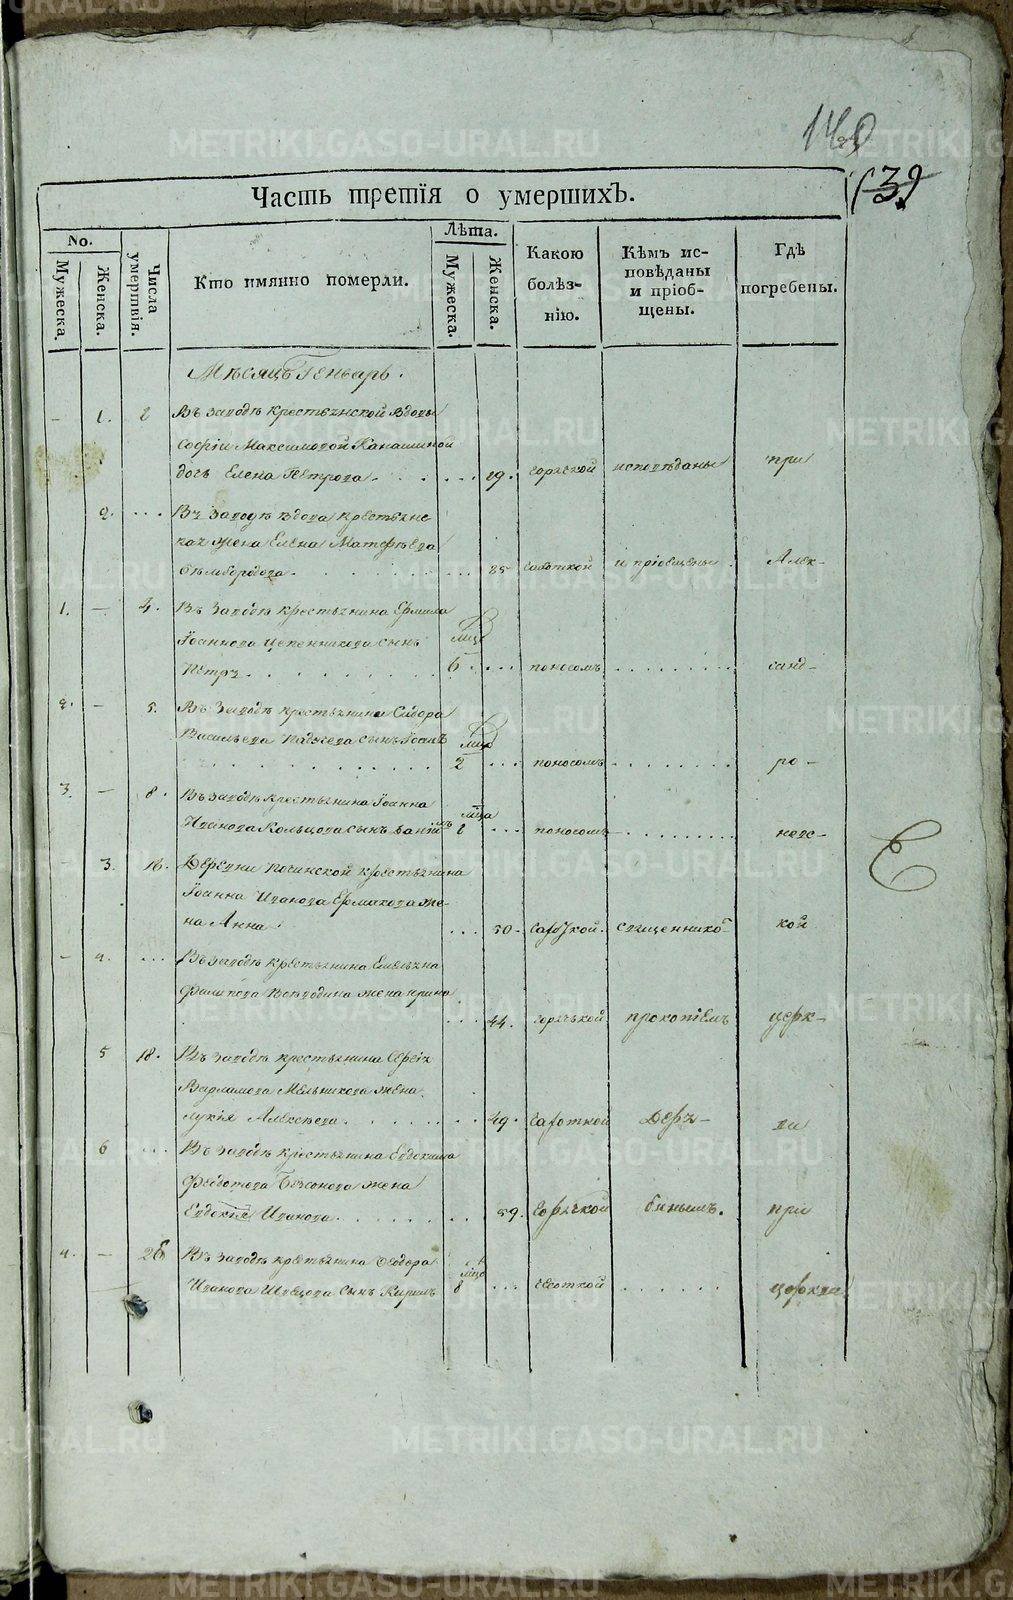 140
139
Часть третія о умершихъ.
No.
Мужеска.
Женска.
Числа умертвія.
Кто имянно померли.
Лѣта.
Мужеска.
Женска.
Какою болѣз-
нію.
Кѣмъ ис-
повѣданы
и пріоб-
щены.
Гдѣ
погребены.
Мѣсяцъ Генварь.
1. 2 Въ заводѣ крестьянской вдовы
Софіи Максимовой
дочь Елена Петрова 19. горячкой исповѣданы при
2. Въ заводѣ вдова крестьянс-
кая жена Елена Матфѣева
Бѣлобородова 85 и пріобщены Алек-
1. 4. Въ заводѣ крестьянина Ермила
Іоаннова сынъ
Петръ 6 поносомъ санд-
2. 5. Въ заводѣ крестьянина Сидора
Васильева сынъ Іоаннъ
2 поносомъ ро-
3. 8. Въ заводѣ крестьянина Іоанна
Иванова Кольцова сынъ
поносомъ невс-
3. 16. Деревни крестьянина
Іоанна Иванова Ермакова же-
на Анна 50 священнико кой
4. Въ заводѣ крестьянина Емельяна
Филипова жена Ирина
44. горячкой прокопіемъ церк-
5 18. Въ заводѣ крестьянина Сергія
Варламова Мельникова жена
Лукія Алексѣева 49. Деря- ви
6 Въ заводѣ крестьянина Евдокима
Федотова жена
Евдокія Иванова 59. горячкой бинымъ. при
4. 26 Въ заводѣ крестьянина Феодора
Иванова Швецова сынъ Кирилъ 8 церкви
METRIKI.GASO-URAL.RU